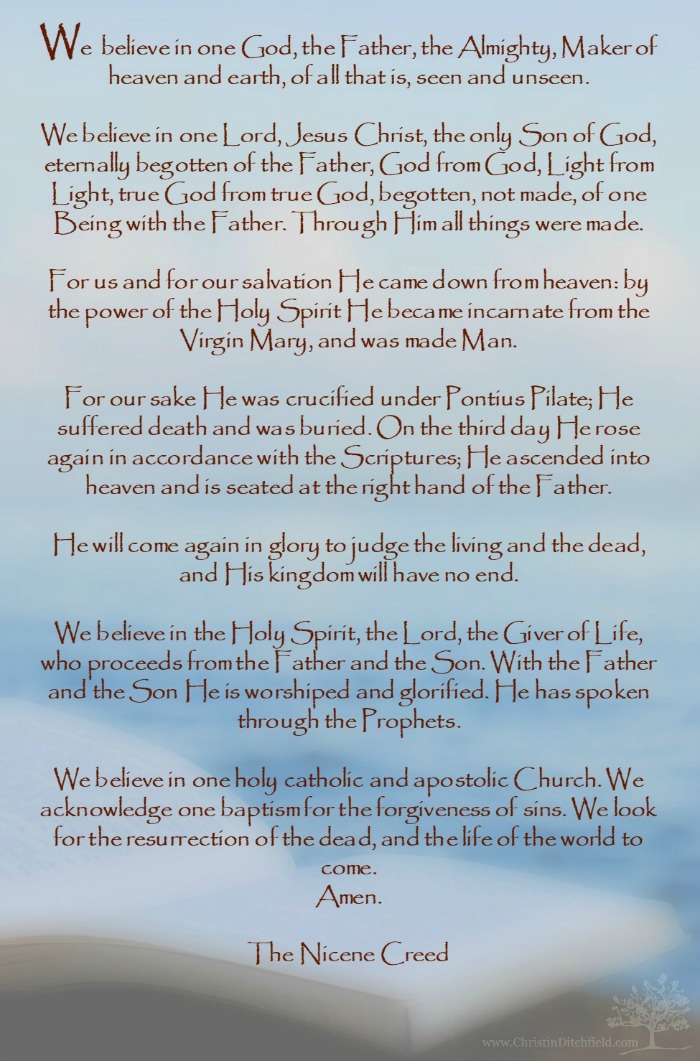 We believe in one God, the Father, the Almighty, Maker of
heaven and earth, of all that is, seen and unseen.
We believe in one Lord, Jesus Christ, the only Son of God,
eternally begotten of the Father, God from God, Light from
Light, true God from true God, begotten, not made, of one
Being with the Father. Through Him all things were made.
For us and for our salvation He came down from heaven: by
the power of the Holy Spirit He became incarnate from the
Virgin Mary, and was made Man.
For our sake He was crucified under Pontius Pilate; He
suffered death and was buried. On the third day He rose
again in accordance with the Scriptures; He ascended into
heaven and is seated at the right hand of the Father.
He will come again in glory to judge the living and the dead,
and His kingdom will have no end.
We believe in the Holy Spirit, the Lord, the Giver of Life,
who proceeds from the Father and the Son. With the Father
and the Son He is worshiped and glorified. He has spoken
through the Prophets.
We believe in one holy catholic and apostolic Church. We
acknowledge one baptism for the forgiveness of sins. We look
for the resurrection of the dead, and the life of the world to
come.
Amen.
The Nicene Creed
www.ChristinDitchfield.com